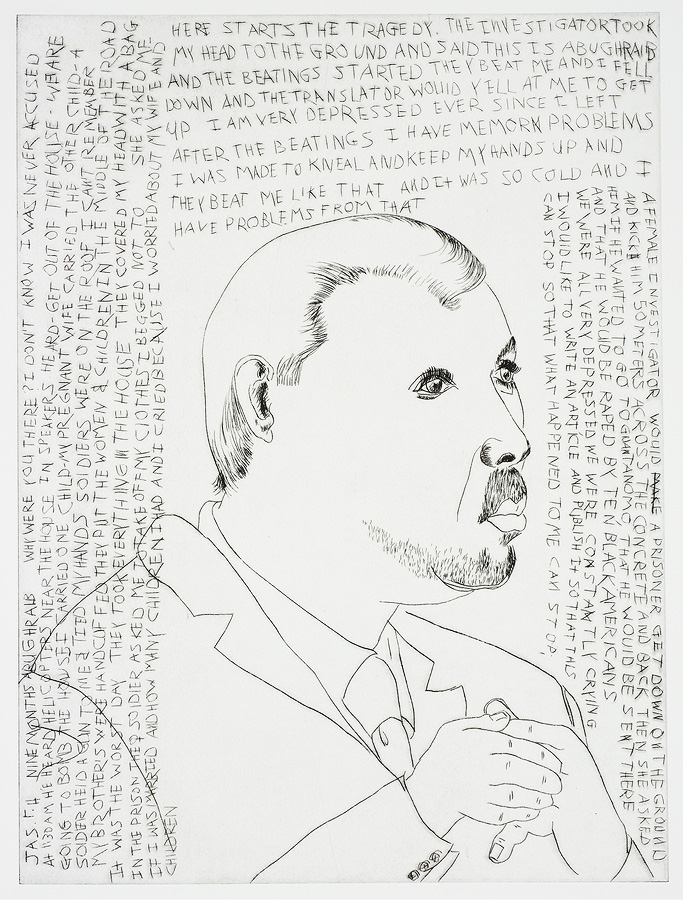 JAS.F.H NINE MONTHS ABUGHRAIB WHY WERE YOU THERE? I DON'T KNOW I WAS NEVER ACCUSED
At 1130 AM HE HEARD HELICOPTERS NEAR THE HOUSE IN SPEAKERS HEARD GET OUT OF THE HOUSE - WE ARE
GOING TO BOMB THE HOUSE I CARRIED ONE CHILD - MY PREGNANT WIFE CARRIED THE OTHER CHILD - A
SOLDIER HELD A GUN TO ME & TIED MY HANDS SOLDIERS WERE ON THE ROOF I CAN'T REMEMBER
MY BROTHERS WERE HANDCUFFED THEY PUT THE WOMEN & CHILDREN IN THE MIDDLE OF THE ROAD
It WAS THE WORST DAY THEY TOOK EVERYTHING IN THE HOUSE THEY COVERED MY HEAD WITH A BAG
IN THE PRISON THE SOLDIER ASKED ME TO TAKE OFF MY CLOTHES I BEGGED NOT TO SHE ASKED ME
IF I WAS MARRIED AND HOW MANY CHILDREN I HAD AND I CRIED BECAUSE I WORRIED ABOUT MY WIFE AND
CHILDREN
HERE STARTS THE TRAGEDY. THE INVESTIGATOR TOOK
MY HEAD TO THE GROUND AND SAID THIS IS ABUGHRAIB
AND THE BEATINGS STARTED THEY BEAT ME AND I FELL
DOWN AND THE TRANSLATOR WOULD YELL AT ME TO GET
UP I AM VERY DEPRESSED EVER SINCE I LEFT
AFTER THE BEATINGS I HAVE MEMORN PROBLEMS
I WAS MADE TO KNEAL AND KEEP MY HANDS UP AND I
THEY BEAT ME LIKE THAT AND It WAS SO COLD AND
HAVE PROBLEMS FROM THAT
A FEMALE INVESTIGATOR WOULD MAKE A PRISONER GET DOWN ON THE GROUND
AND KICK HIM 50 METERS ACROSS THE CONCRETE AND BACK THEN SHE ASKED
HEM IF HE WANTED TO GO TO GUANTANOMO THAT HE WOULD BE SENT THERE
AND THAT HE WOULD BE RAPED BY TEN BLACK AMERICANS
WE WERE ALL VERY DEPRESSED WE WERE CONSTANTLY CRYING
I WOULD LIKE TO WRITE AN ARTICLE AND PUBLISH IT SO THAT THIS
CAN STOP SO THAT WHAT HAPPENED TO ME CAN STOP,